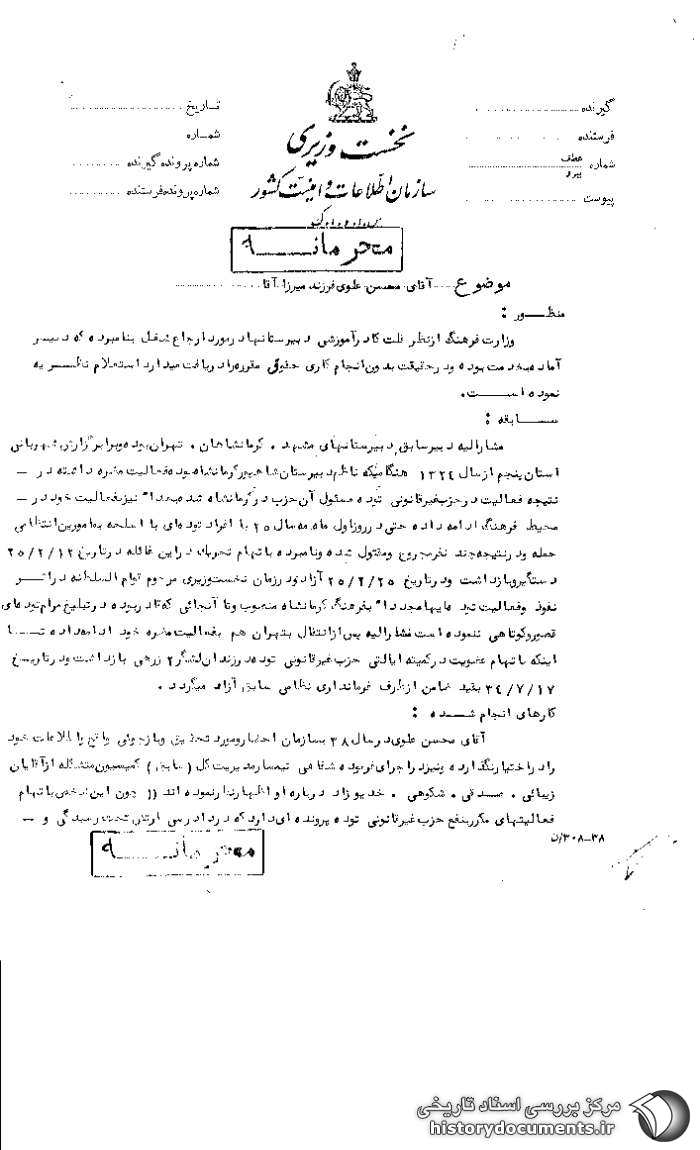 گیرنده
فرستنده
شماره عطف
پیرو
پیوست
تاریخ
شماره
شماره پرونده گیرنده
شماره پرونده فرستنده
نخست وزیری
سازمان اطلاعات و امنیت کشور
محرمانه
موضوع آقای محسن علوی فرزند میرزا آقا
منظور :
وزارت فرهنگ از نظر قلت کادر آموزشی دبیرستانها در مورد ارجاع شغل بنامبرده که دبیر
آماده بخدمت بوده و در حقیقت بدون انجام کاری حقوق مقرره را دریافت میدارد استعلام نظریه
نموده است.
سابقه :
مشارالیه دبیر سابق دبیرستانهای مشهد . کرمانشاهان . تهران بوده و برابر گزارش شهربانی
استان پنجم از سال ۱۳۲۴ هنگامیکه ناظم دبیرستان شاهپور کرمانشاه بوده فعالیت مضره داشته در –
نتیجه فعالیت در حزب غیرقانونی توده مسئول آن حزب در کرمانشاه شده بعداً نیز بفعالیت خود در –
محیط فرهنگ ادامه داده حتی در روز اول ماه مه سال ۲۵ با افراد توده‌ای با اسلحه بمامورین انتظامی
حمله و در نتیجه چند نفر مجروح و مقتول شده و نامبرده باتهام تحریک در این غائله در تاریخ ۲۵/۲/۱۲
دستگیر و بازداشت و در تاریخ ۲۵/۲/۲۵ آزاد و در زمان نخست وزیری مرحوم قوام السلطنه در اثر
نفوذ و فعالیت توده ایها مجدداً بفرهنگ کرمانشاه منصوب و تا آنجائی که قادر بوده در تبلیغ مرام توده‌ای
قصور و کوتاهی ننموده است مشارالیه پس از انتقال بتهران هم بفعالیت مضره خود ادامه داده تا
اینکه باتهام عضویت در کمیته ایالتی حزب غیرقانونی توده در زندان لشگر ۲ زرهی بازداشت و در تاریخ
۳۴/۷/۱۷ بقید ضامن از طرف فرمانداری نظامی سابق آزاد میگردد .
کارهای انجام شده :
آقای محسن علوی در سال ۳۸ بسازمان احضار و مورد تحقیق و بازجوئی واقع و اطلاعات خود
را در اختیار نگذارده و نیز در اجرای فرموده شفاهی تیمسار مدیریت کل (سابق) کمیسیون متشکله از آقایان
زیبائی . صدقی . شکوهی . خدیو زاد درباره او اظهار نظر نموده اند (( چون این شخص باتهام
فعالیتهای مکرر بنفع حزب غیرقانونی توده پرونده ای دارد که در دادرسی ارتش تحت رسیدگی و –
۳۸–۳۰۸/ن
محرمانه
مرکز بررسی اسناد تاریخی
historydocuments.ir